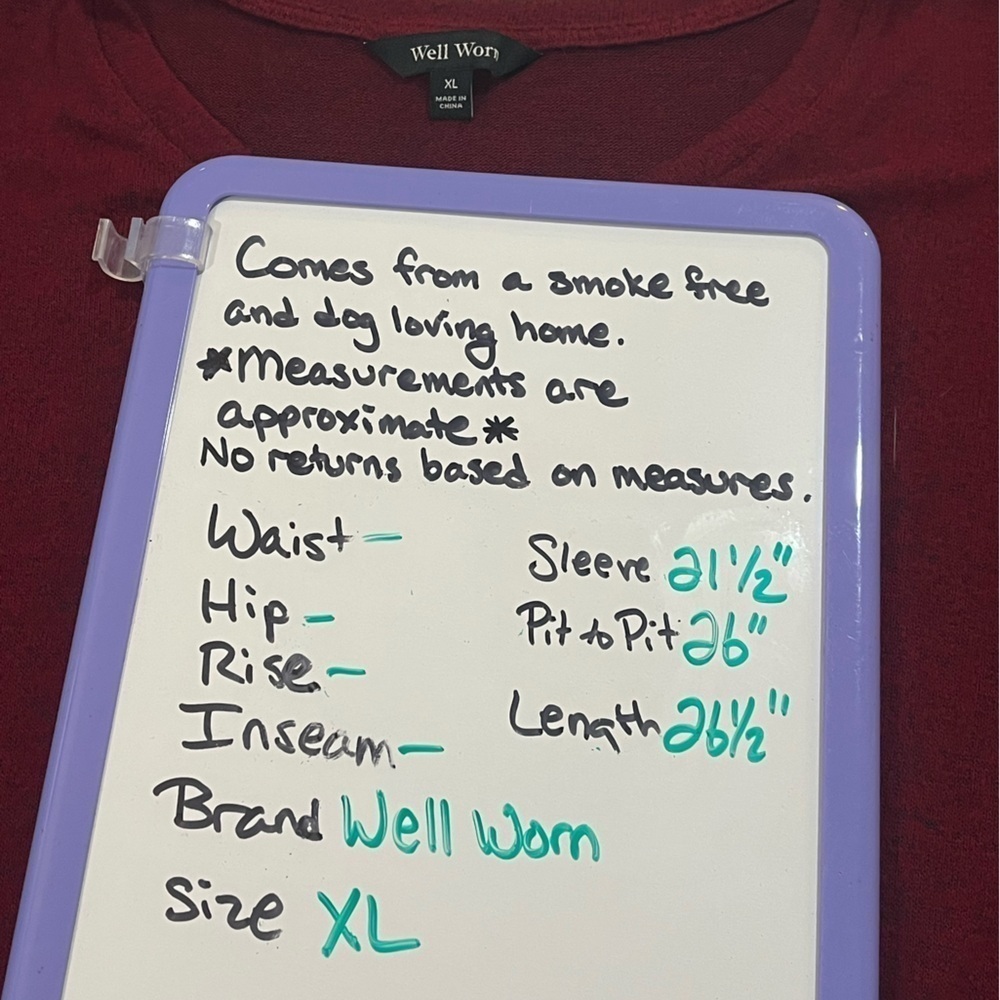 Well Worn
XL
MADE IN
CHINA
Comes from a smoke free
and dog loving home.
*Measurements are
approximate*
No returns based on measures.
Waist -
Hip -
Rise -
Inseam -
Sleeve 21 1/2"
Pit to Pit 26"
Length 26 1/2"
Brand Well Worn
Size XL